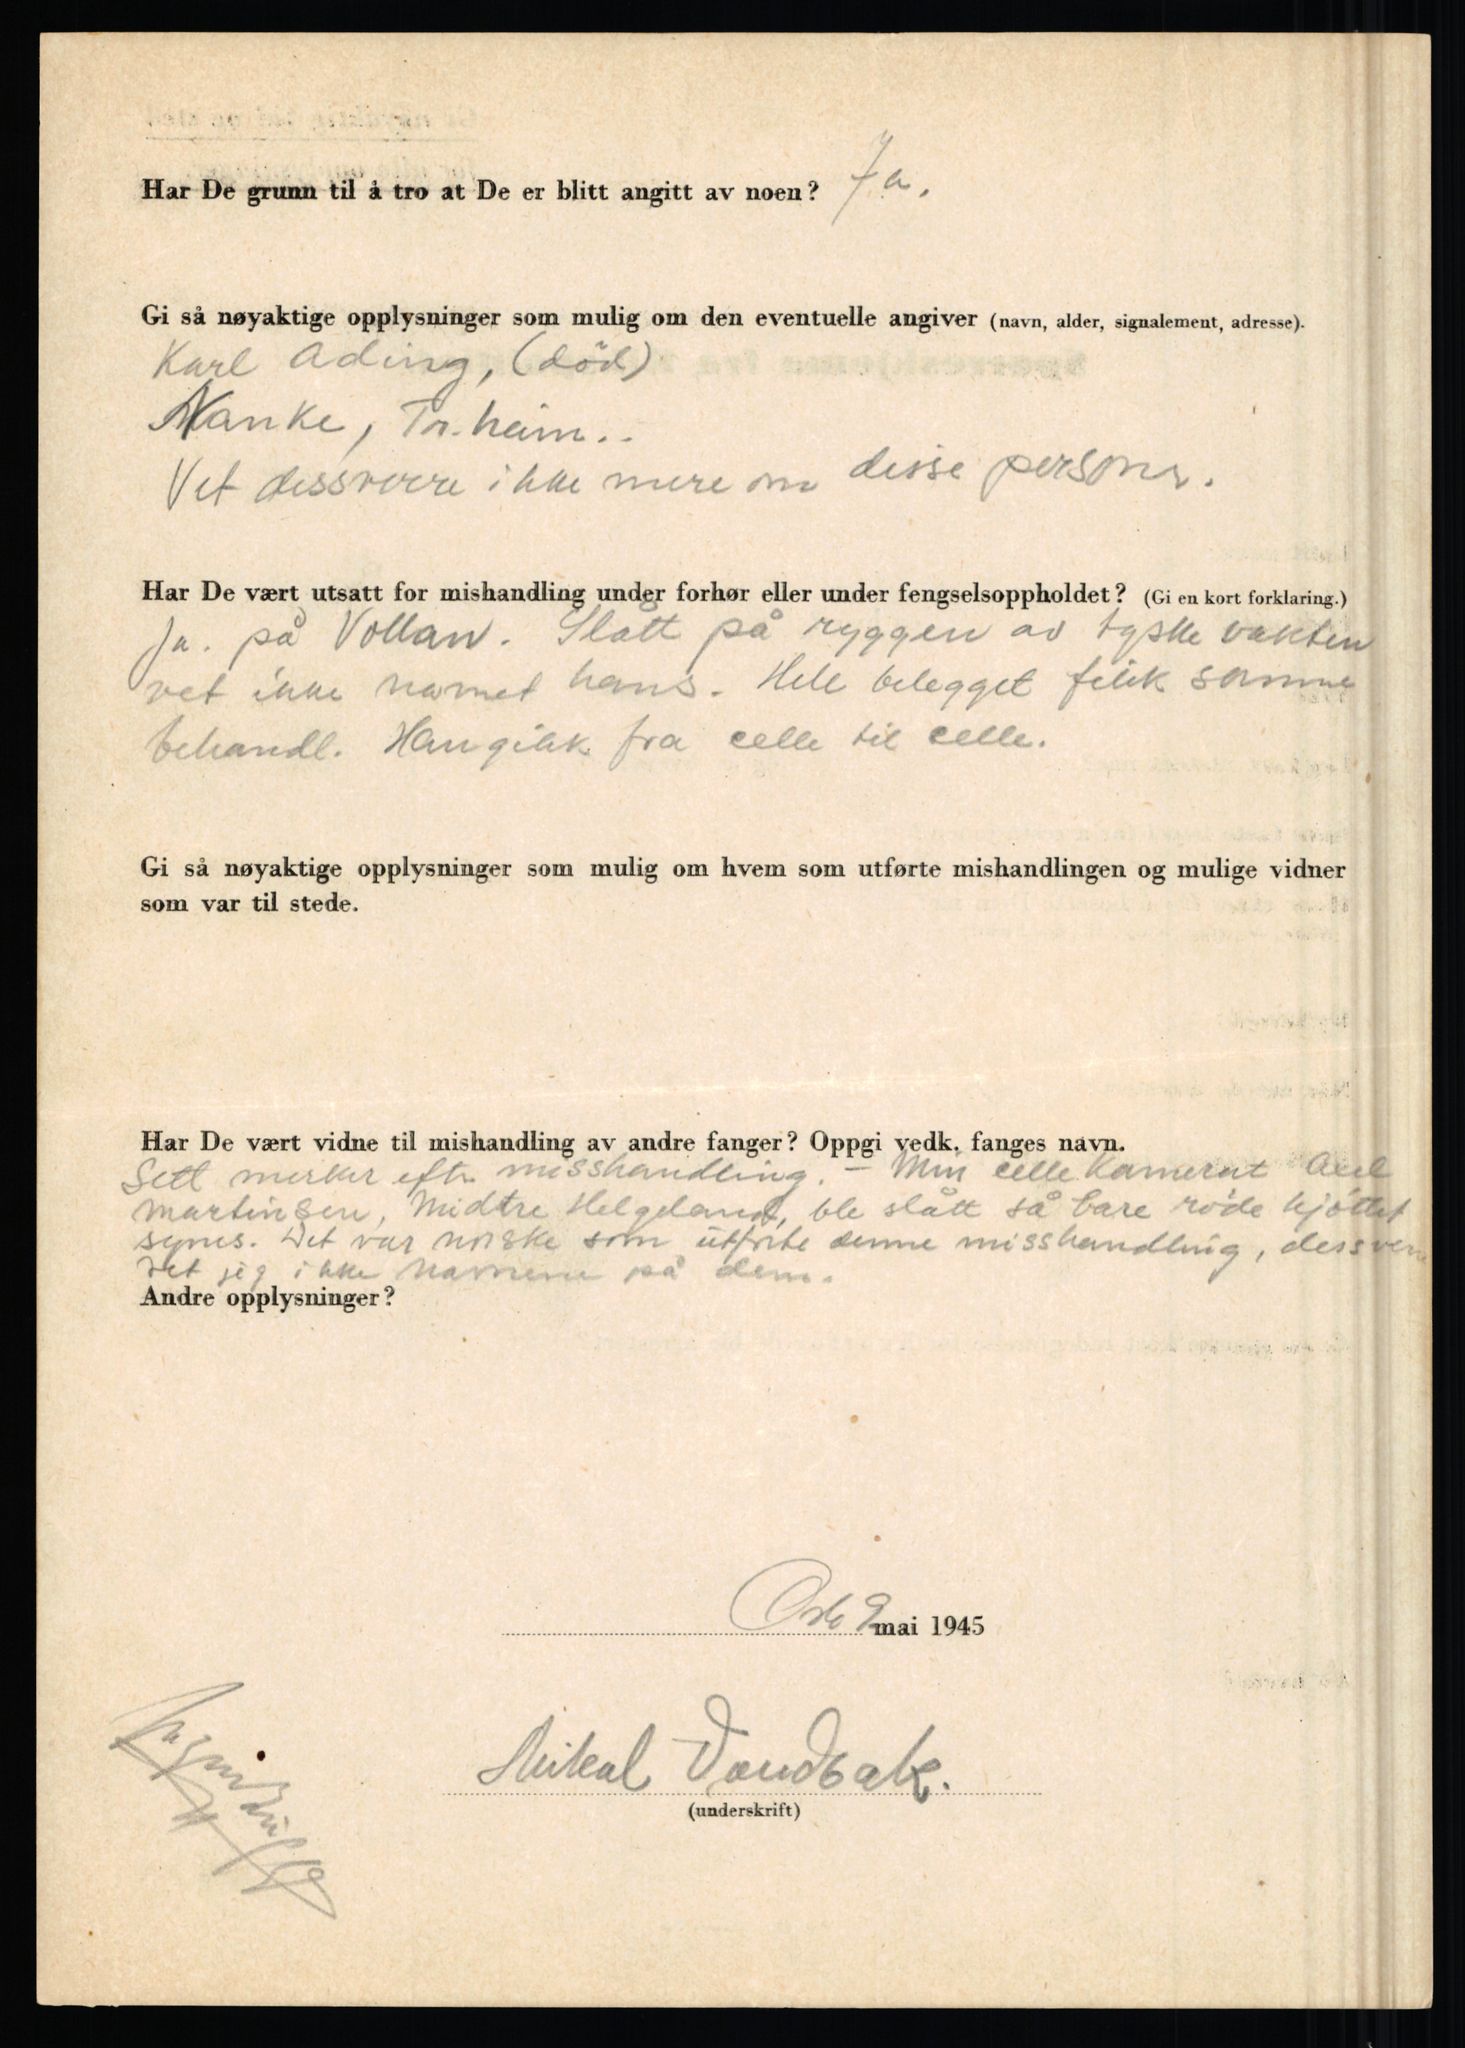 Har De grunn til å tro at De er blitt angitt av noen? Ja.
Gi så nøyaktige opplysninger som mulig om den eventuelle angiver (navn, alder, signalement, adresse).
Karl Ading, (död)
Nanke, Tr.heim..
Vet dessverre ikke mere om disse personer.
Har De vært utsatt for mishandling under forhør eller under fengselsoppholdet? (Gi en kort forklaring.)
Ja. på Vollan. Slått på ryggen av tyske vakten
vet ikke navnet hans. Hele belegget fikk samme
behandl. Han gikk fra celle til celle.
Gi så nøyaktige opplysninger som mulig om hvem som utførte mishandlingen og mulige vidner
som var til stede.
Har De vært vidne til mishandling av andre fanger? Oppgi vedk. fanges navn.
Sett merker eftr misshandling. – Min celle kamerat Axel
Martinsen, Midtre Helgeland, ble slått så bare røde kjøttet
synes. Det var norske som utførte denne misshandling, dessverre
vet jeg ikke navnene på dem.
Andre opplysninger?
Oslo 9 mai 1945
Mikal Vandbakk.
(underskrift)